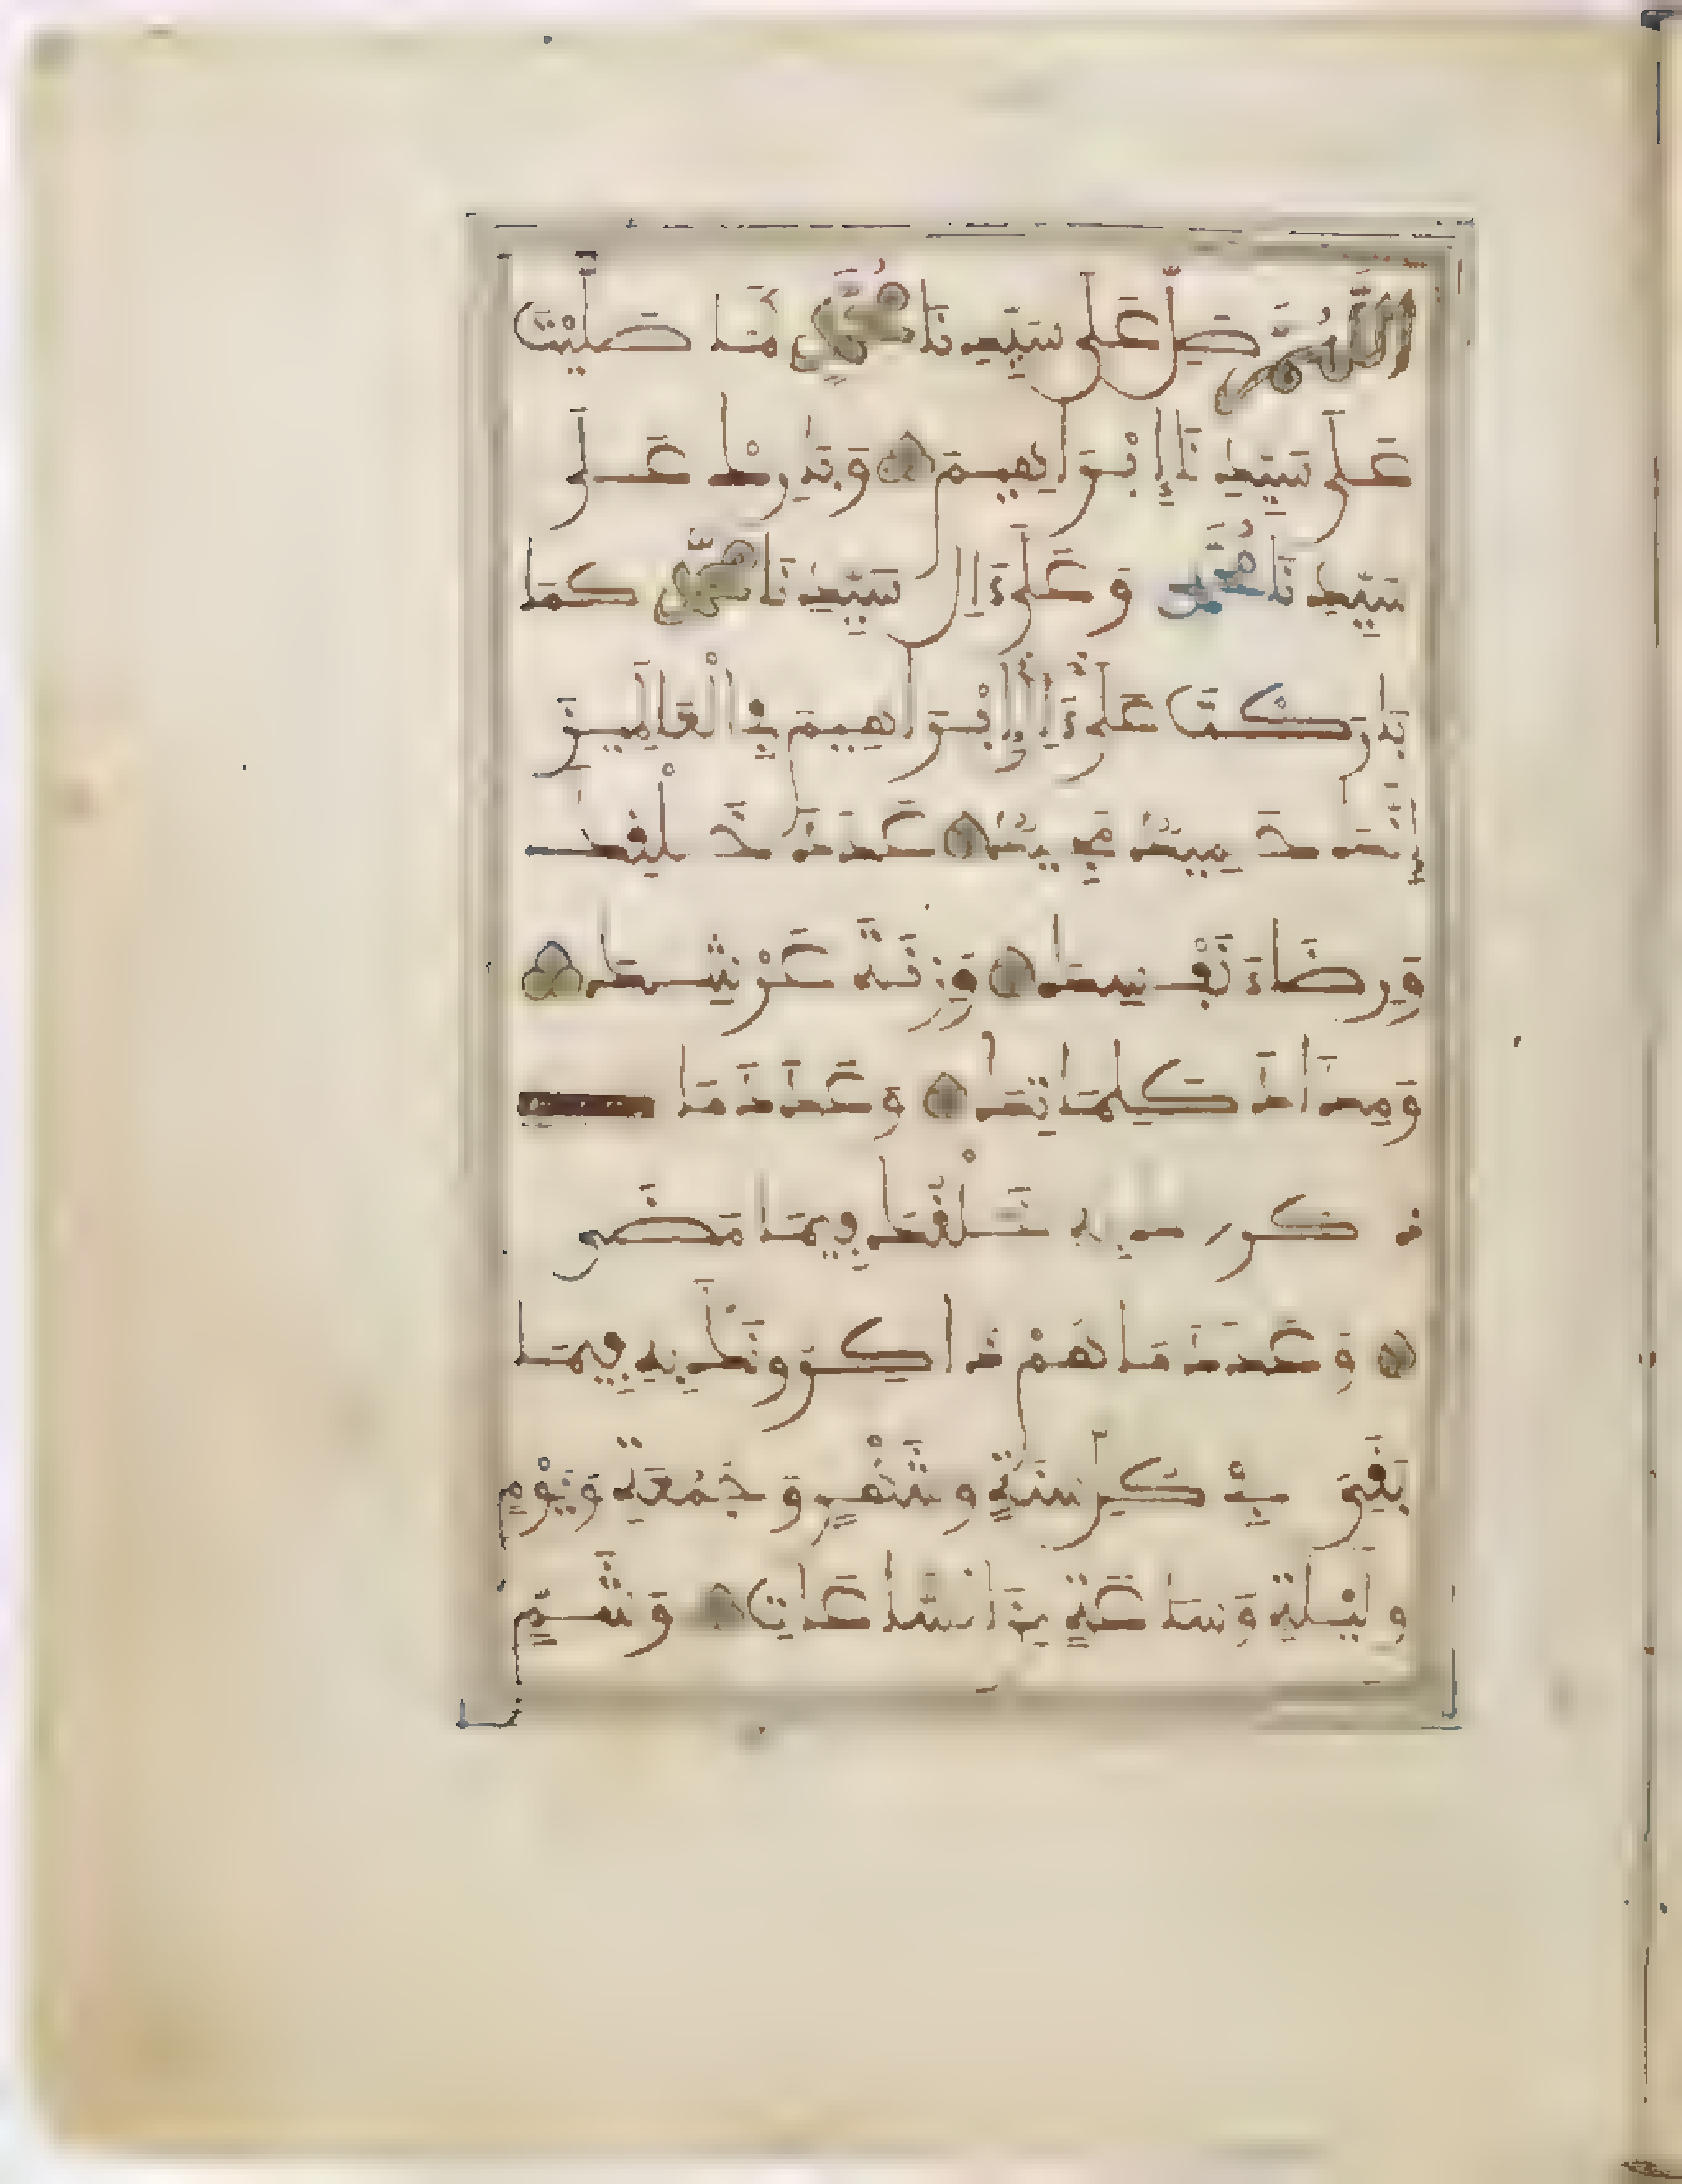 اللَّهُمَّ صَلِّ عَلَى سَيِّدِنَا مُحَمَّدٍ كَمَا صَلَّيْتَ
عَلَى سَيِّدِنَا إِبْرَاهِيمَ وَبَارِكْ عَلَى
سَيِّدِنَا مُحَمَّدٍ وَعَلَى ءَالِ سَيِّدِنَا مُحَمَّدٍ كَمَا
بَارَكْتَ عَلَى ءَالِ إِبْرَاهِيمَ فِي الْعَالَمِينَ
إِنَّكَ حَمِيدٌ مَجِيدٌ عَدَدَ خَلْقِكَ
وَرِضَاءَ نَفْسِكَ وَزِنَةَ عَرْشِكَ
وَمِدَادَ كَلِمَاتِكَ وَعَدَدَ مَا
ذكرك به خَلْقُكَ فِيمَا مَضَى
وَعَدَدَ مَا هُمْ ذَاكِرُونَكَ بِهِ فِيمَا
بَقِيَ فِي كُلِّ سَنَةٍ وَشَهْرٍ وَجُمُعَةٍ وَيَوْمٍ
وَلَيْلَةٍ وَسَاعَةٍ مِنَ السَّاعَاتِ وَشَمٍّ